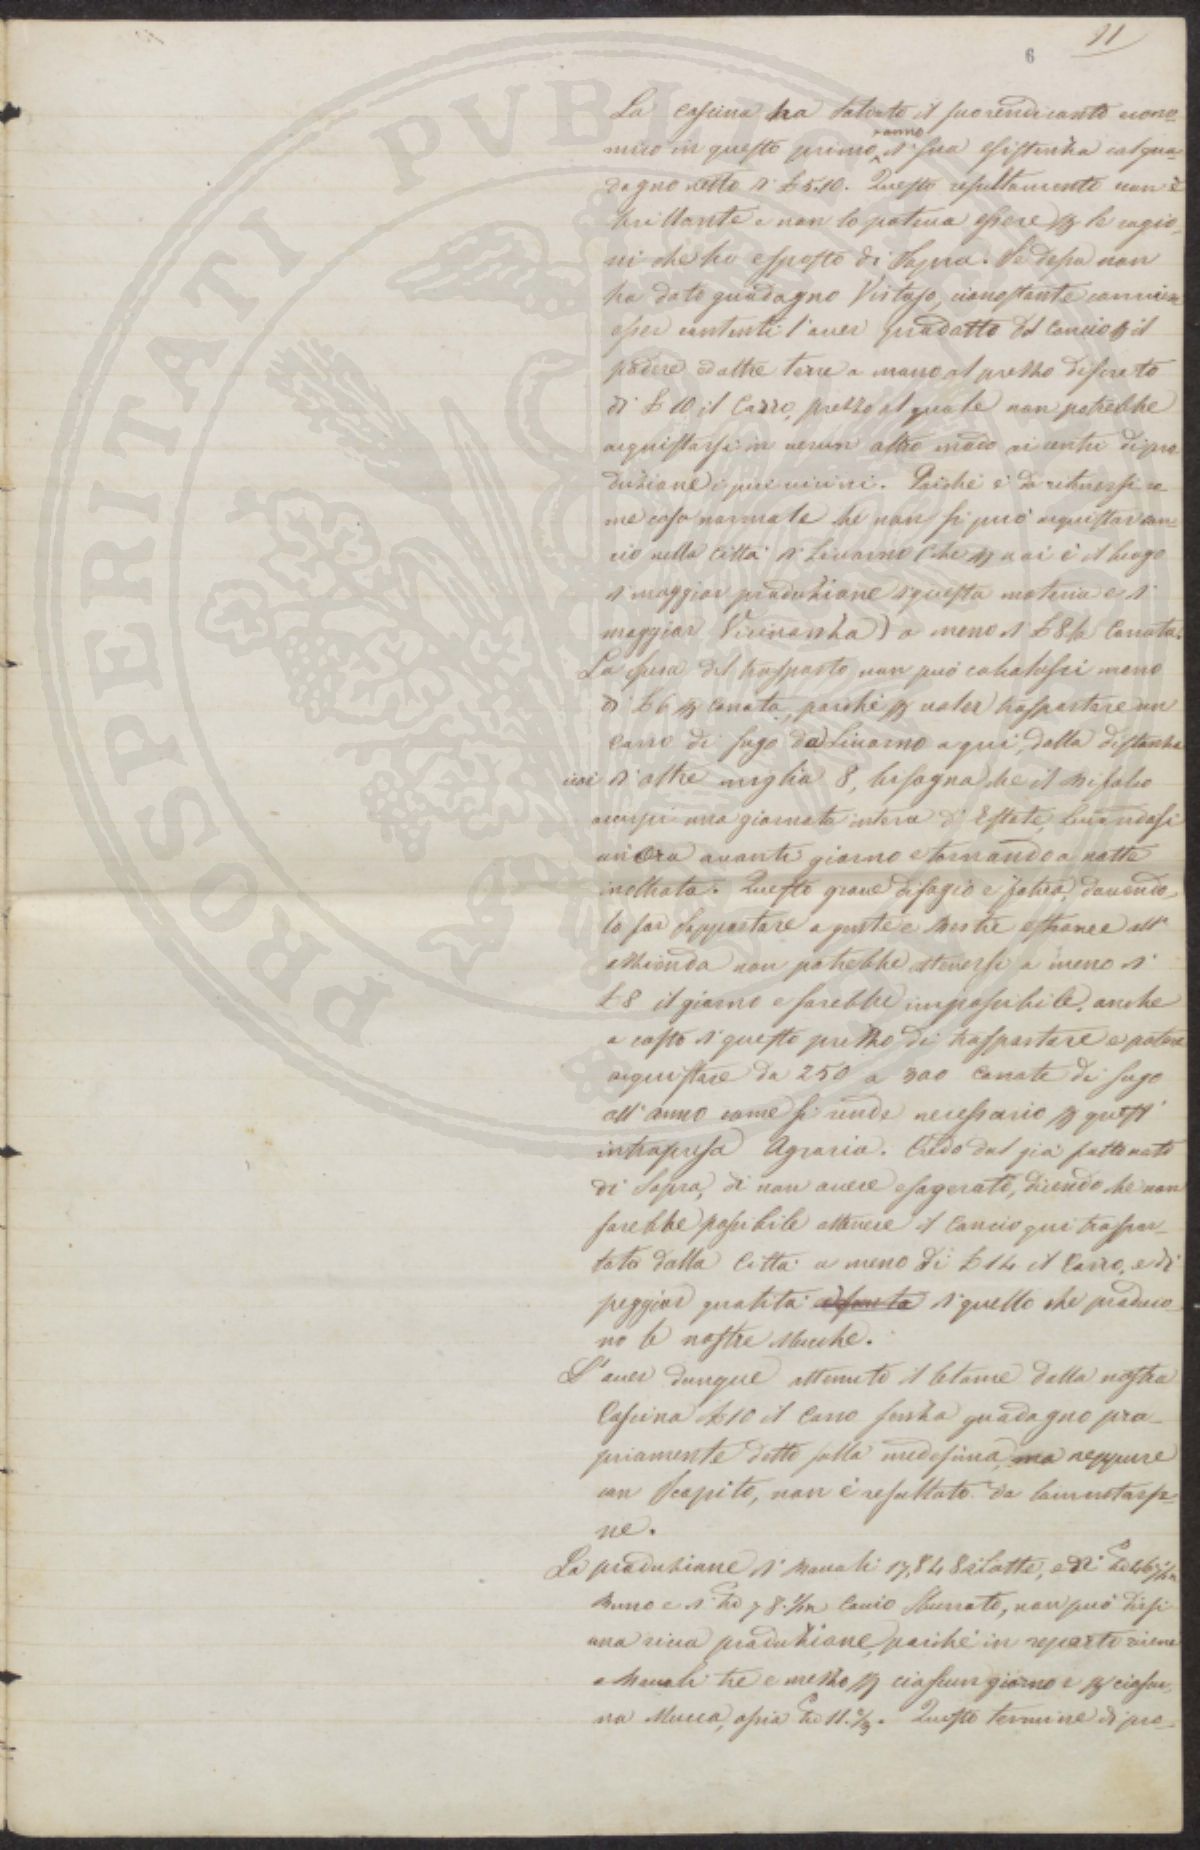 11
6
La Cascina ha saldato il suo rendiconto econo-
mico in questo primo anno d'sua esistenza col gua-
dagno netto di £ 5.10. Questo resultamento non è
brillante e non lo poteva essere p le ragio-
ni che ho esposto di Sopra. Se dessa non
ha dato guadagno Vistoso, cionostante convien
esser contenti l'aver prodotto del Concio p il
podere ed altre terre a mano al prezzo discreto
di £ 10 il Carro, prezzo al quale non potrebbe
acquistarsi in verun altro modo ai centri di pro
duzione i più vicini. Poichè è da ritenersi co
me cosa normale che non si può acquistar con-
cio nella Città di Livorno (che p noi è il luogo
di maggior produzione d'questa materia e di
maggior Vicinanza) a meno di £ 8 la Carrata.
La spesa del trasporto non può calcolarsi meno
di £ 6 p Carrata, poichè p voler trasportare un
Carro di sugo da Livorno a qui, dalla distanza
cioè d'oltre miglia 8, bisogna che il Bifolco
occupi una giornata intera d'Estate, levandosi
un'Ora avanti giorno e tornando a notte
inoltrata. Questo grave disagio e fatica, dovendo-
lo far Sopportare a gente e bestie estranee all'
azzienda non potrebbe ottenersi a meno di
£ 8 il giorno e sarebbe impossibile, anche
a costo d'questo prezzo di trasportare e potere
acquistare da 250 a 300 Carrate di sugo
all'anno come si rende necessario p quest'
intrapresa Agraria. Credo dal già fatto noto
di Sopra, di non avere esagerato, dicendo che non
sarebbe possibile ottenere il Concio qui traspor-
tato dalla Città a meno di £ 14 il Carro, e di
peggior qualità d'quello che produco-
no le nostre Mucche.
L'aver dunque ottenuto il letame dalla nostra
Cascina £ 10 il Carro senza guadagno pro-
priamente detto sulla medesima, ma neppure
con Scapito, non è resultato da lamentarse-
ne.
La produzione di Boccali 17,848 di Latte, e di
Burro e di Cacio Sburrato, non può dirsi
una ricca produzione, poichè in reparto viene
a Boccali tre e mezzo p ciascun giorno e p ciascu-
na Mucca, ossia 11.2/3. Questo termine di pro-